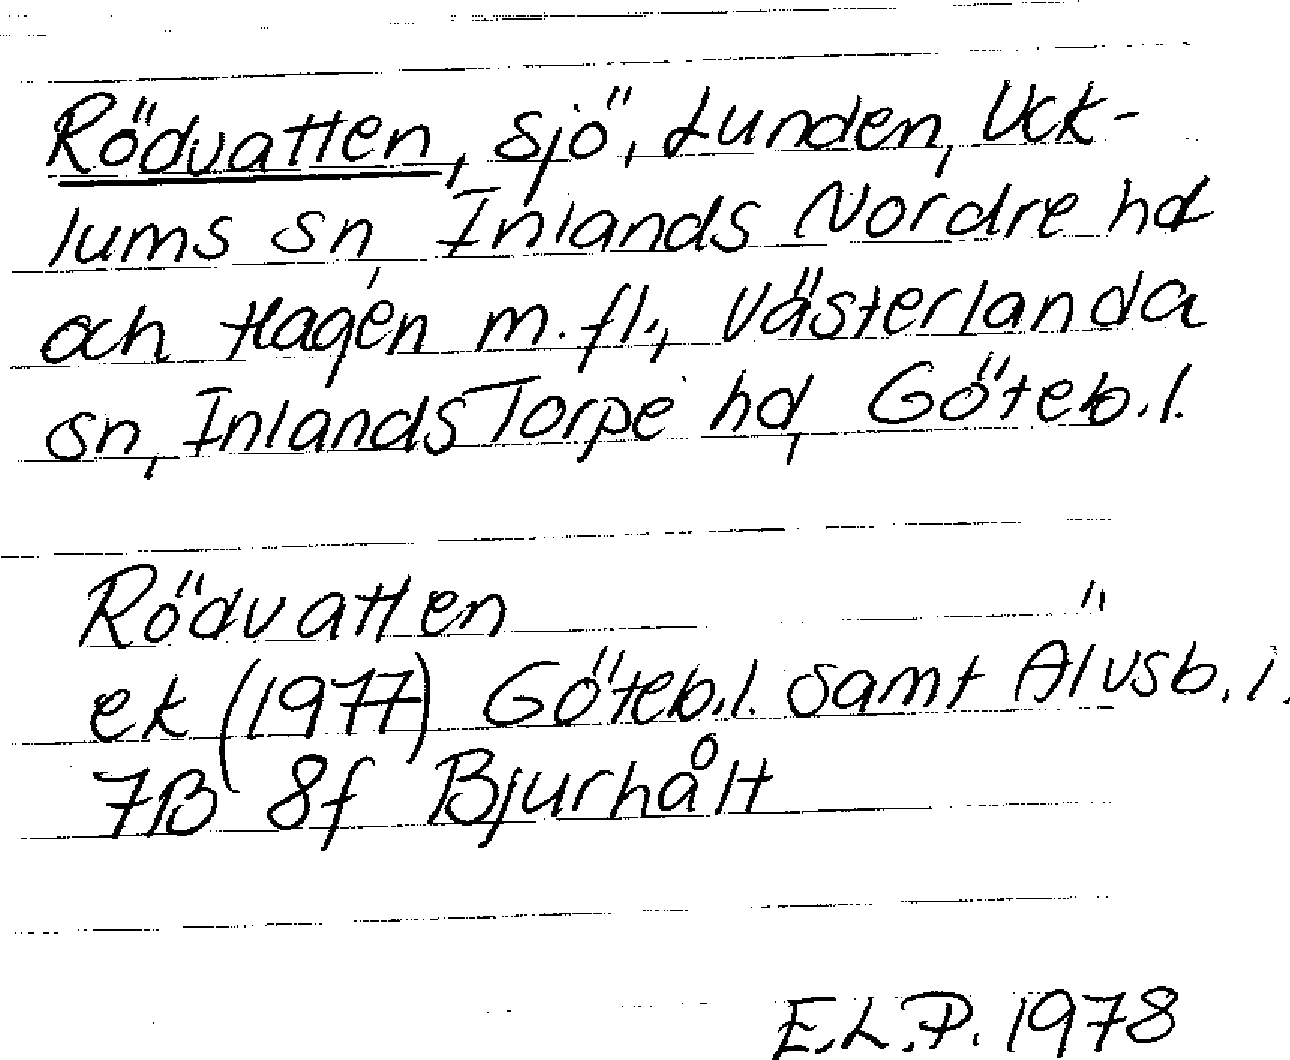 Rödvatten, sjö, Lunden, Uck-
lums sn, Inlands Nordre hd
och Hagen m.fl., Västerlanda
sn, Inlands Torpe hd, Göteb.l.
Rödvatten
ek (1977) Göteb.l. samt Älvsb.l.
7B 8f Bjurhålt
E.L.P. 1978